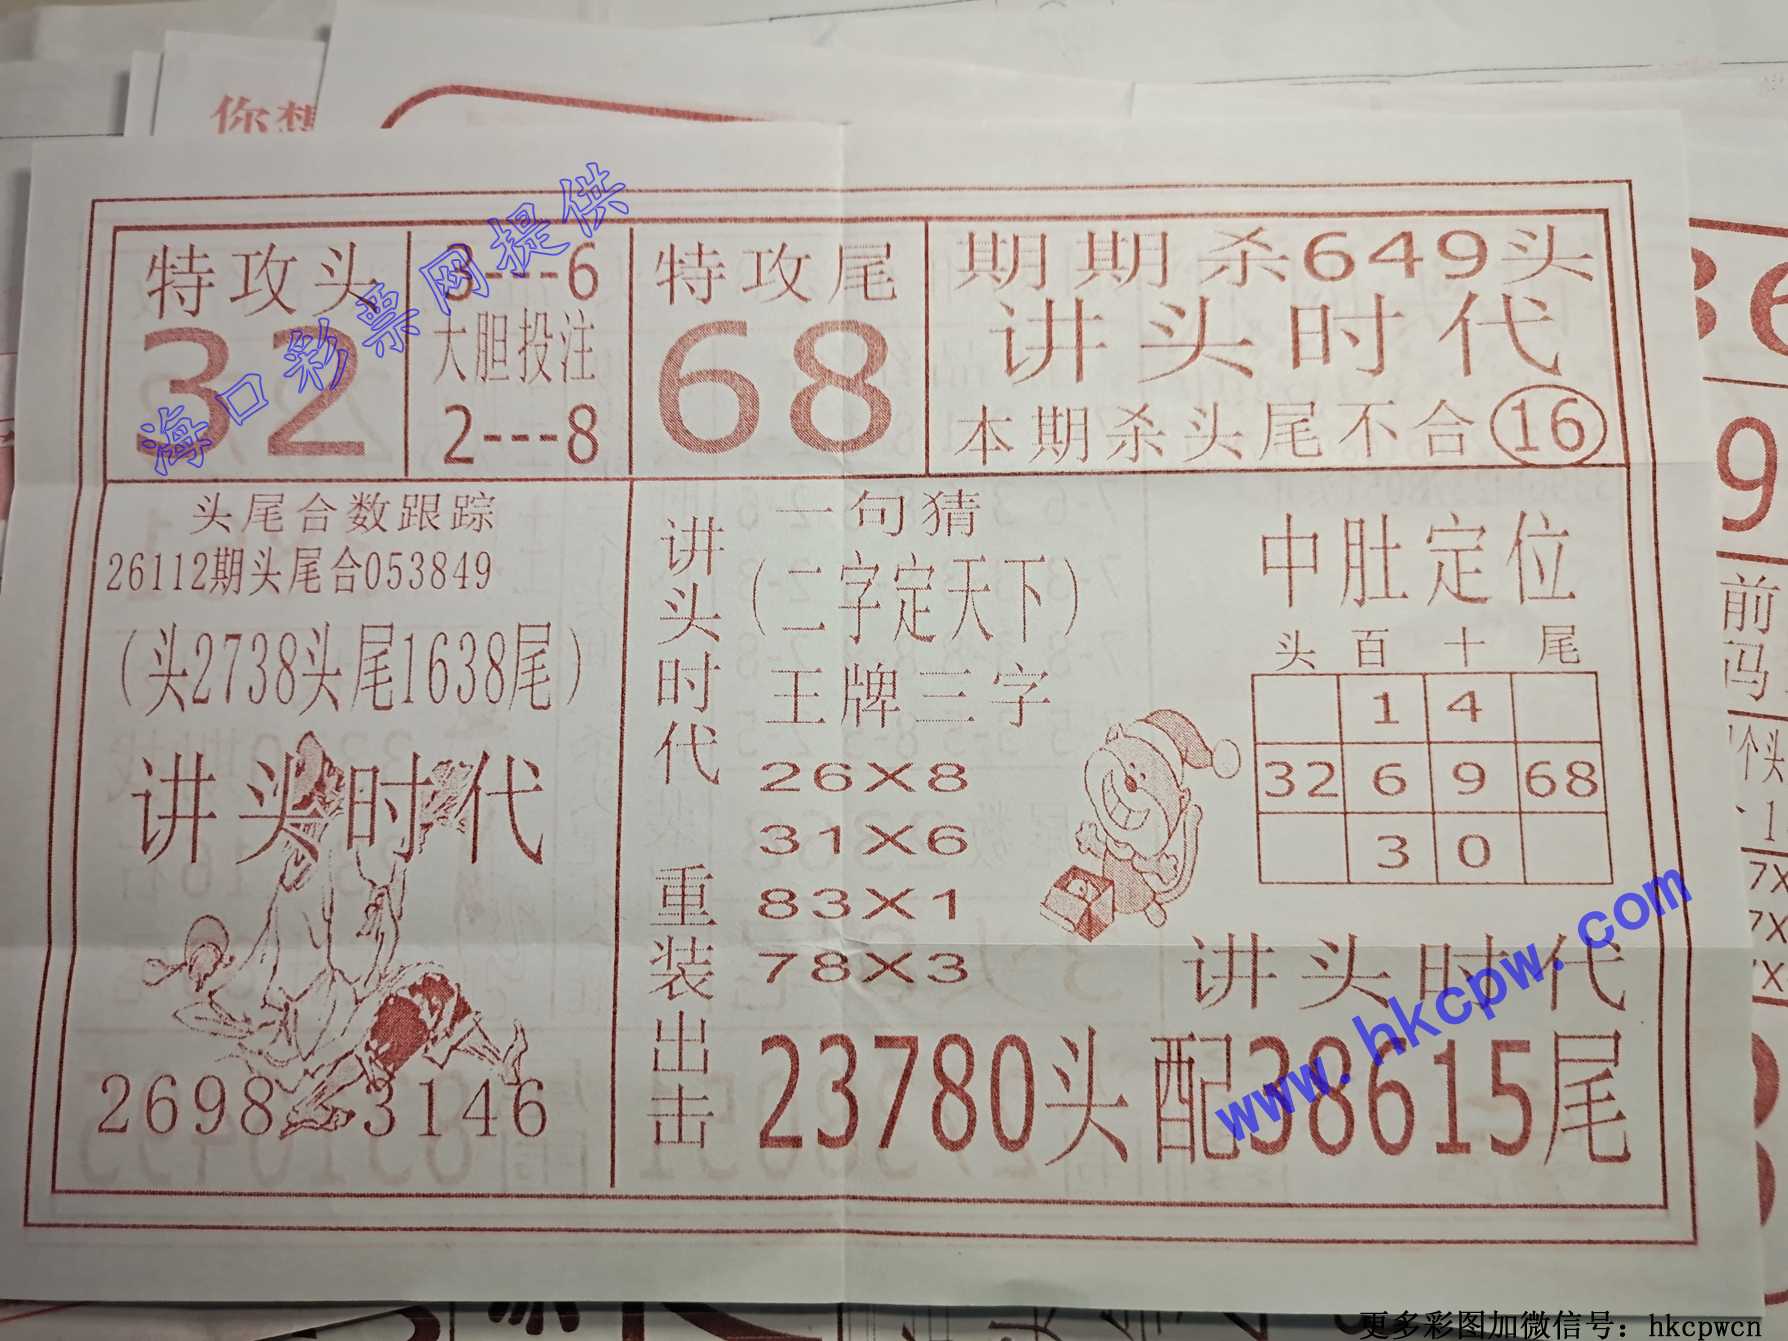 你想
特攻头
32
3---6
大胆投注
2---8
特攻尾
68
期期杀649头
讲头时代
本期杀头尾不合16
头尾合数跟踪
26112期头尾合053849
(头2738头尾1638尾)
讲头时代
2698 3146
讲头时代
重装出击
一句猜
(二字定天下)
王牌三字
26X8
31X6
83X1
78X3
中肚定位
头 百 十 尾
1 4
32 6 9 68
3 0
讲头时代
23780头配38615尾
9
前
海口彩票网提供
www.hkcpw.com
更多彩图加微信号：hkcpwcn